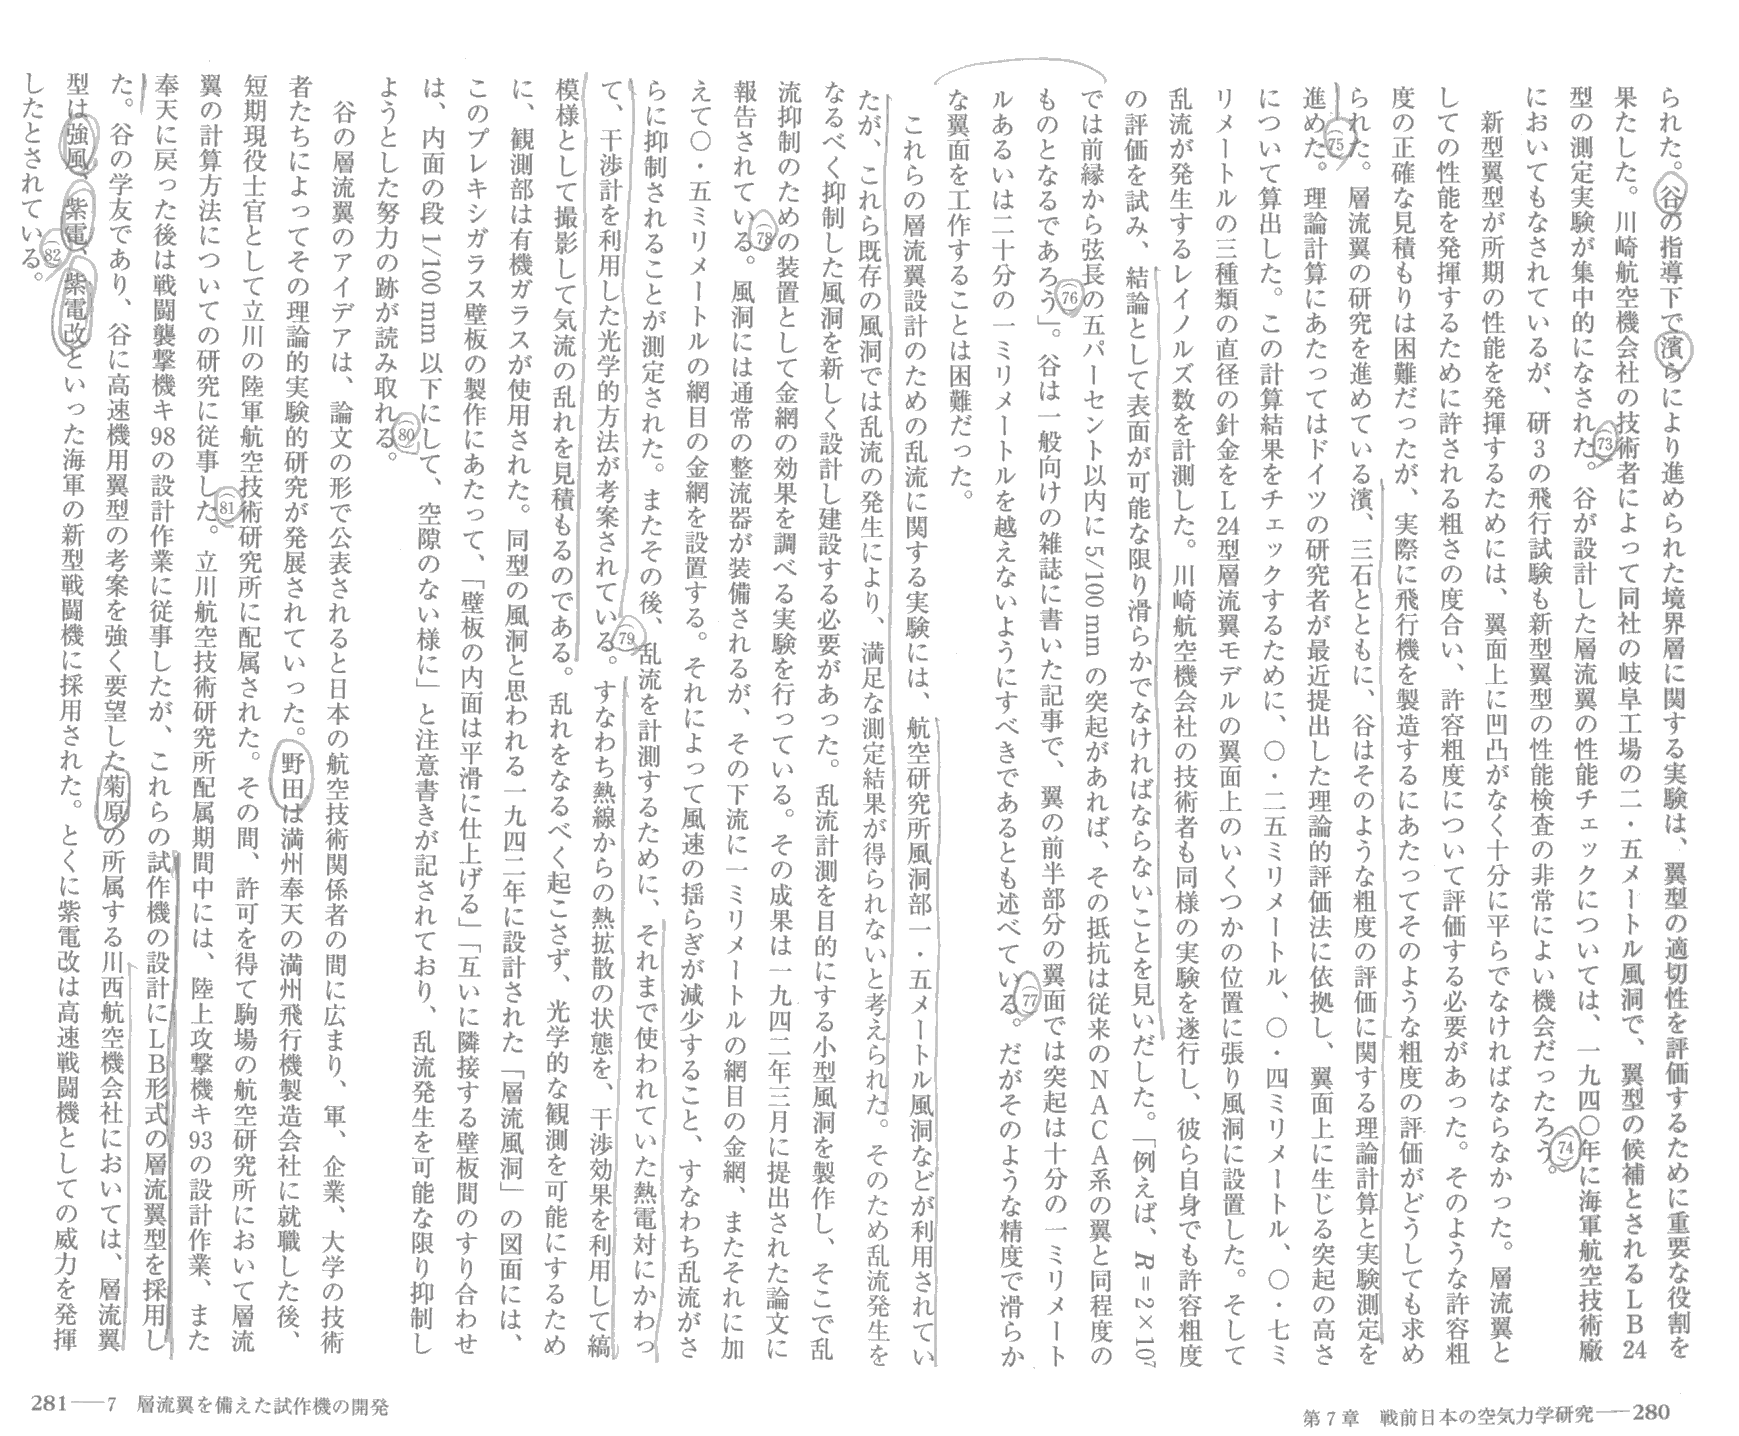 られた。谷の指導下で濱らにより進められた境界層に関する実験は、翼型の適切性を評価するために重要な役割を
果たした。川崎航空機会社の技術者によって同社の岐阜工場の二・五メートル風洞で、翼型の候補とされるLB24
型の測定実験が集中的になされた(73)。谷が設計した層流翼の性能チェックについては、一九四〇年に海軍航空技術廠
においてもなされているが、研3の飛行試験も新型翼型の性能検査の非常によい機会だったろう(74)。
新型翼型が所期の性能を発揮するためには、翼面上に凹凸がなく十分に平らでなければならなかった。層流翼と
しての性能を発揮するために許される粗さの度合い、許容粗度について評価する必要があった。そのような許容粗
度の正確な見積もりは困難だったが、実際に飛行機を製造するにあたってそのような粗度の評価がどうしても求め
られた。層流翼の研究を進めている濱、三石とともに、谷はそのような粗度の評価に関する理論計算と実験測定を
進めた(75)。理論計算にあたってはドイツの研究者が最近提出した理論的評価法に依拠し、翼面上に生じる突起の高さ
について算出した。この計算結果をチェックするために、〇・二五ミリメートル、〇・四ミリメートル、〇・七ミ
リメートルの三種類の直径の針金をL24型層流翼モデルの翼面上のいくつかの位置に張り風洞に設置した。そして
乱流が発生するレイノルズ数を計測した。川崎航空機会社の技術者も同様の実験を遂行し、彼ら自身でも許容粗度
の評価を試み、結論として表面が可能な限り滑らかでなければならないことを見いだした。「例えば、R=2×10⁷
では前縁から弦長の五パーセント以内に 5/100 mm の突起があれば、その抵抗は従来のNACA系の翼と同程度の
ものとなるであろう(76)」。谷は一般向けの雑誌に書いた記事で、翼の前半部分の翼面では突起は十分の一ミリメート
ルあるいは二十分の一ミリメートルを越えないようにすべきであるとも述べている(77)。だがそのような精度で滑らか
な翼面を工作することは困難だった。
これらの層流翼設計のための乱流に関する実験には、航空研究所風洞部一・五メートル風洞などが利用されてい
たが、これら既存の風洞では乱流の発生により、満足な測定結果が得られないと考えられた。そのため乱流発生を
なるべく抑制した風洞を新しく設計し建設する必要があった。乱流計測を目的にする小型風洞を製作し、そこで乱
流抑制のための装置として金網の効果を調べる実験を行っている。その成果は一九四二年三月に提出された論文に
報告されている(78)。風洞には通常の整流器が装備されるが、その下流に一ミリメートルの網目の金網、またそれに加
えて〇・五ミリメートルの網目の金網を設置する。それによって風速の揺らぎが減少すること、すなわち乱流がさ
らに抑制されることが測定された。またその後、乱流を計測するために、それまで使われていた熱電対にかわっ
て、干渉計を利用した光学的方法が考案されている(79)。すなわち熱線からの熱拡散の状態を、干渉効果を利用して縞
模様として撮影して気流の乱れを見積もるのである。乱れをなるべく起こさず、光学的な観測を可能にするため
に、観測部は有機ガラスが使用された。同型の風洞と思われる一九四二年に設計された「層流風洞」の図面には、
このプレキシガラス壁板の製作にあたって、「壁板の内面は平滑に仕上げる」「互いに隣接する壁板間のすり合わせ
は、内面の段 1/100 mm 以下にして、空隙のない様に」と注意書きが記されており、乱流発生を可能な限り抑制し
ようとした努力の跡が読み取れる(80)。
谷の層流翼のアイデアは、論文の形で公表されると日本の航空技術関係者の間に広まり、軍、企業、大学の技術
者たちによってその理論的実験的研究が発展されていった。野田は満州奉天の満州飛行機製造会社に就職した後、
短期現役士官として立川の陸軍航空技術研究所に配属された。その間、許可を得て駒場の航空研究所において層流
翼の計算方法についての研究に従事した(81)。立川航空技術研究所配属期間中には、陸上攻撃機キ93の設計作業、また
奉天に戻った後は戦闘襲撃機キ98の設計作業に従事したが、これらの試作機の設計にLB形式の層流翼型を採用し
た。谷の学友であり、谷に高速機用翼型の考案を強く要望した菊原の所属する川西航空機会社においては、層流翼
型は強風、紫電、紫電改といった海軍の新型戦闘機に採用された。とくに紫電改は高速戦闘機としての威力を発揮
したとされている(82)。
第7章 戦前日本の空気力学研究——280
281——7 層流翼を備えた試作機の開発